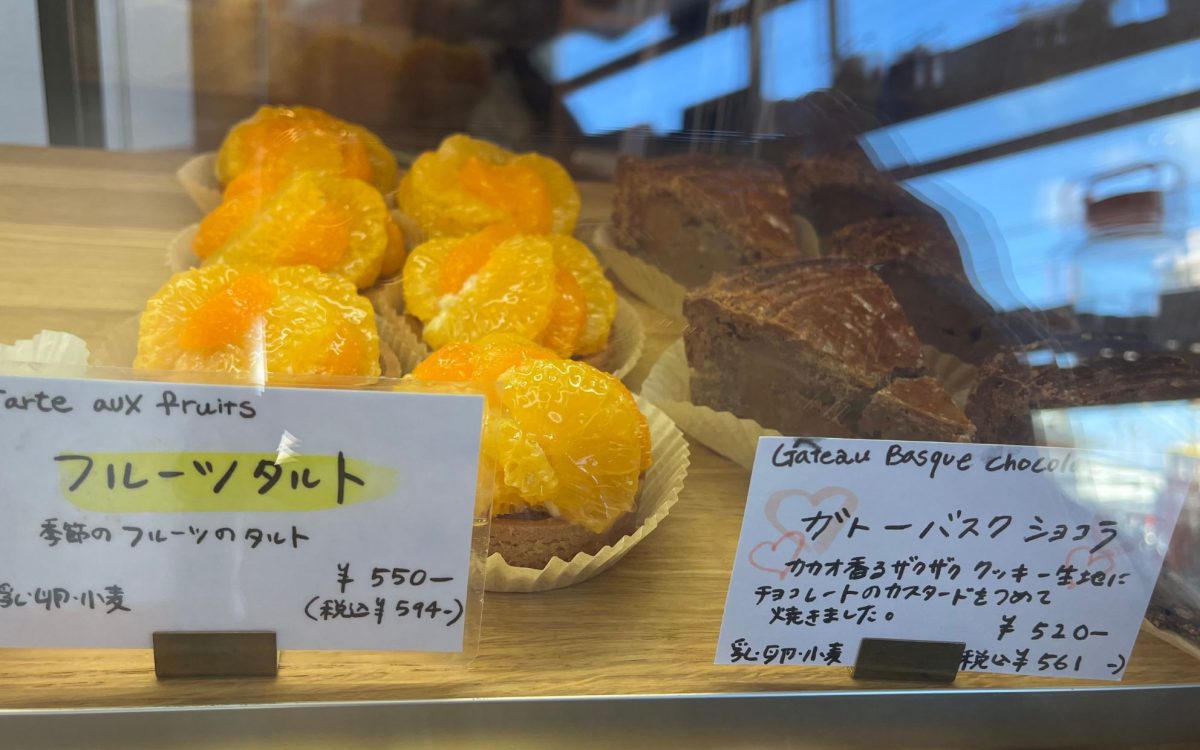 Tarte aux fruits
フルーツタルト
季節のフルーツのタルト
¥550-
(税込¥594-)
乳・卵・小麦
Gâteau Basque chocola
ガトーバスクショコラ
カカオ香るザクザククッキー生地に
チョコレートのカスタードをつめて
焼きました。
¥520-
税込¥561-)
乳・卵・小麦